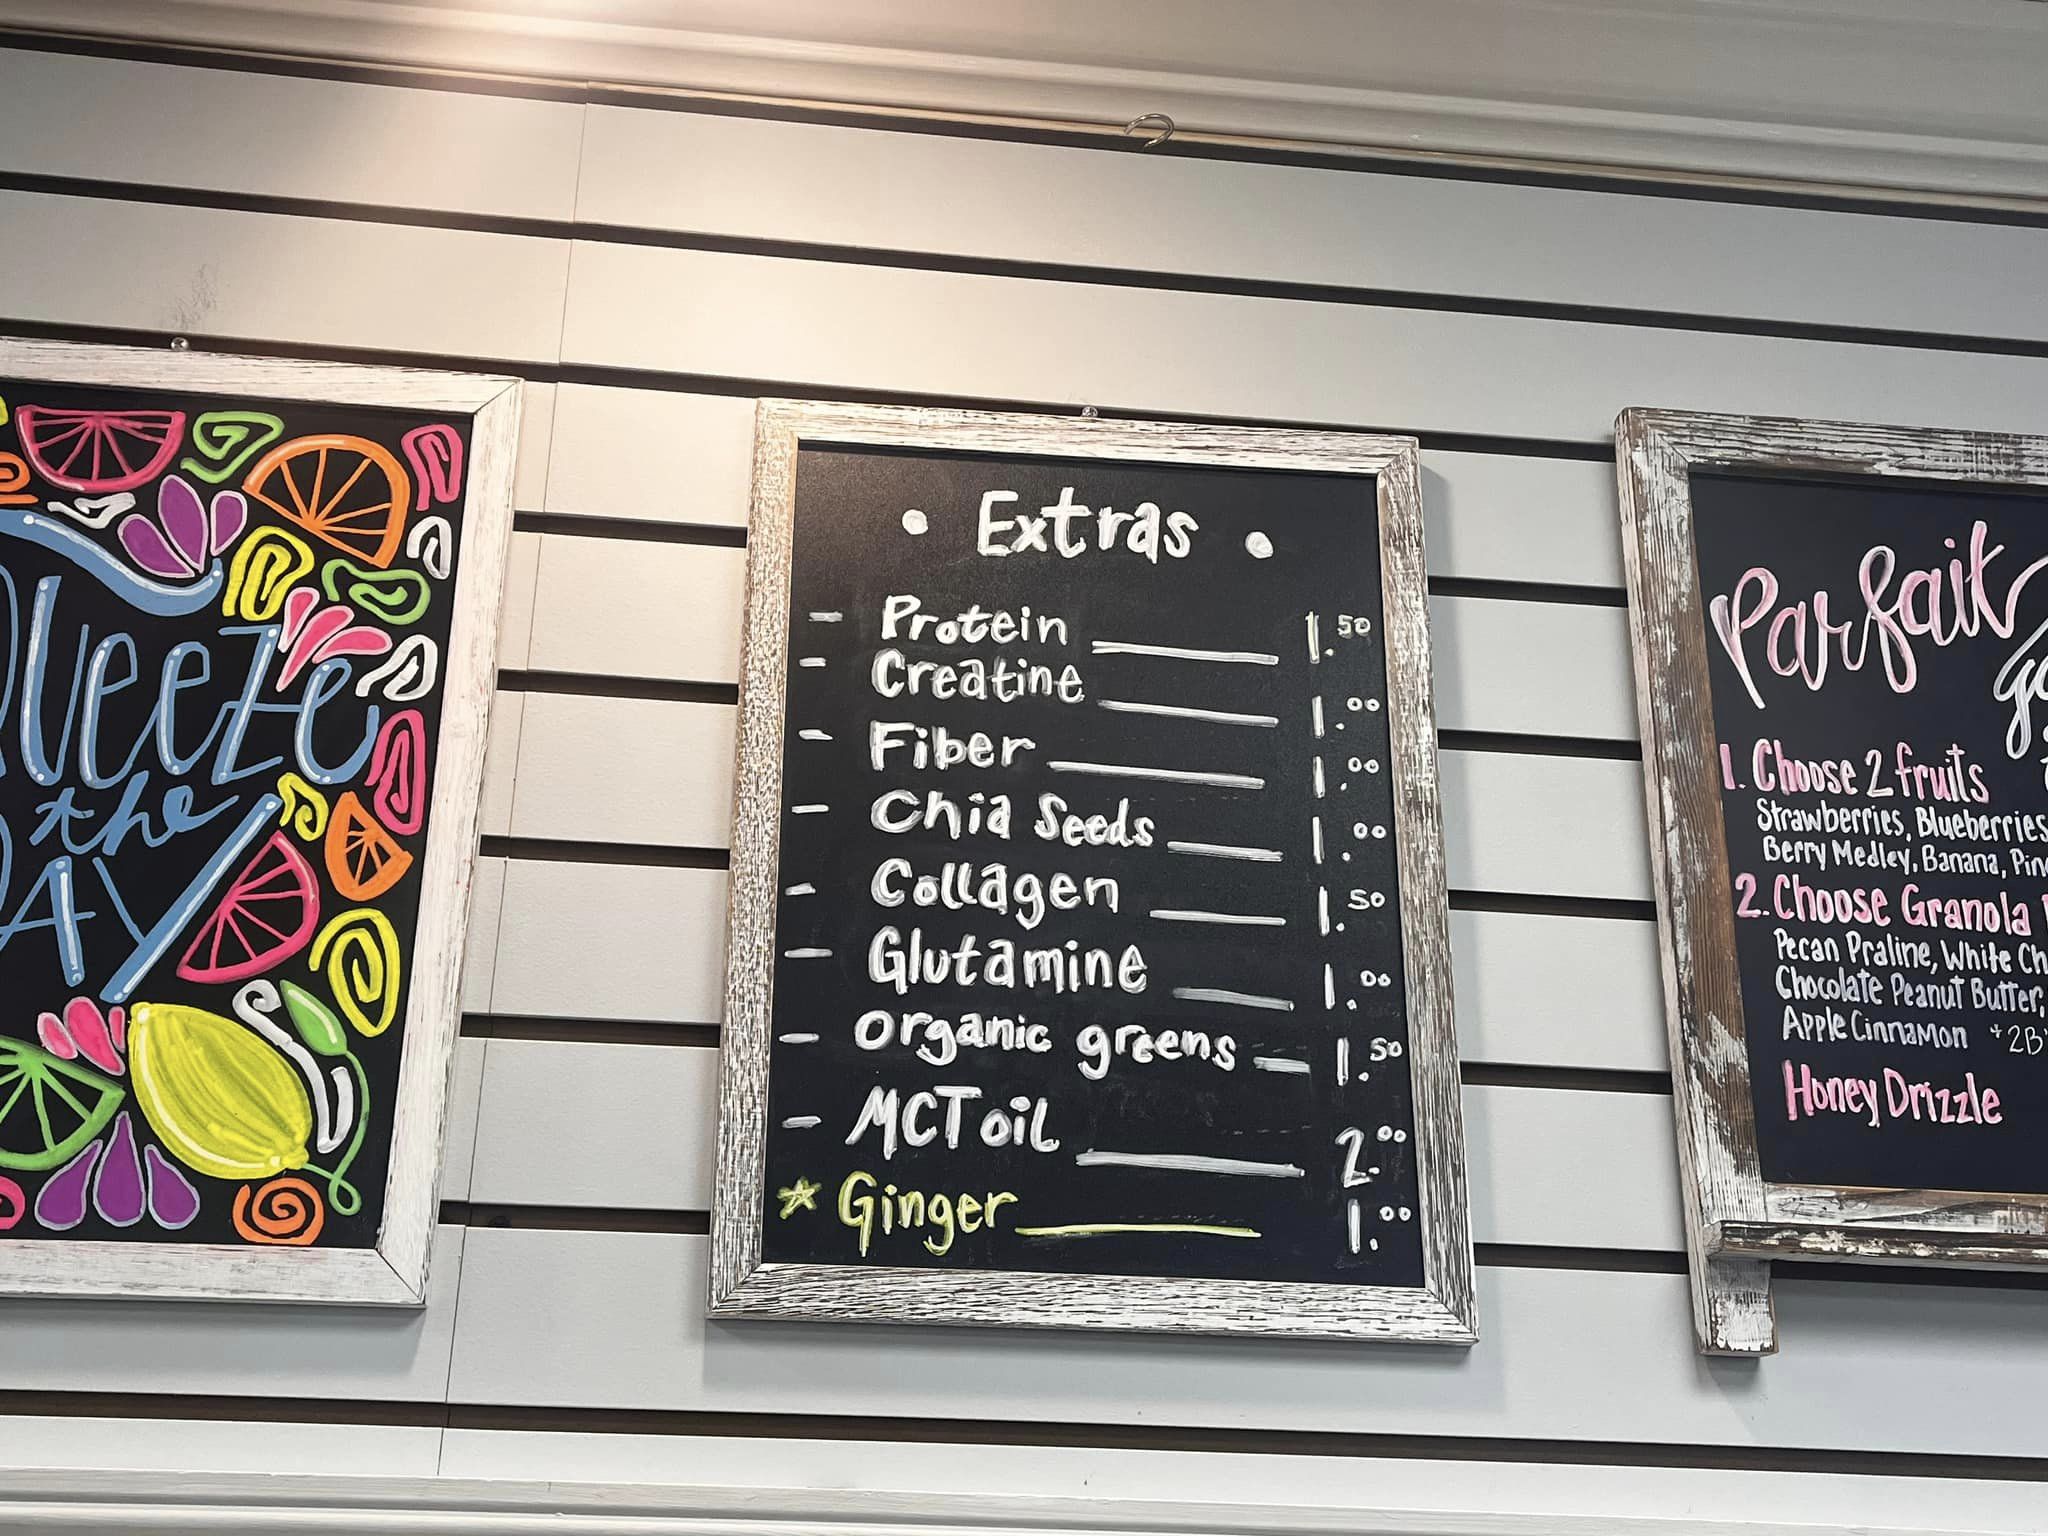 Squeeze
the
DAY
• Extras •
– Protein ___ 1.50
– Creatine ___ 1.00
– Fiber ___ 1.00
– Chia Seeds ___ 1.00
– Collagen ___ 1.50
– Glutamine ___ 1.00
– Organic greens ___ 1.50
– MCT oil ___ 2.00
☆ Ginger ___ 1.00
Parfait
1. Choose 2 fruits
Strawberries, Blueberries
Berry Medley, Banana,
2. Choose Granola
Pecan Praline, White
Chocolate Peanut Butter,
Apple Cinnamon
Honey Drizzle